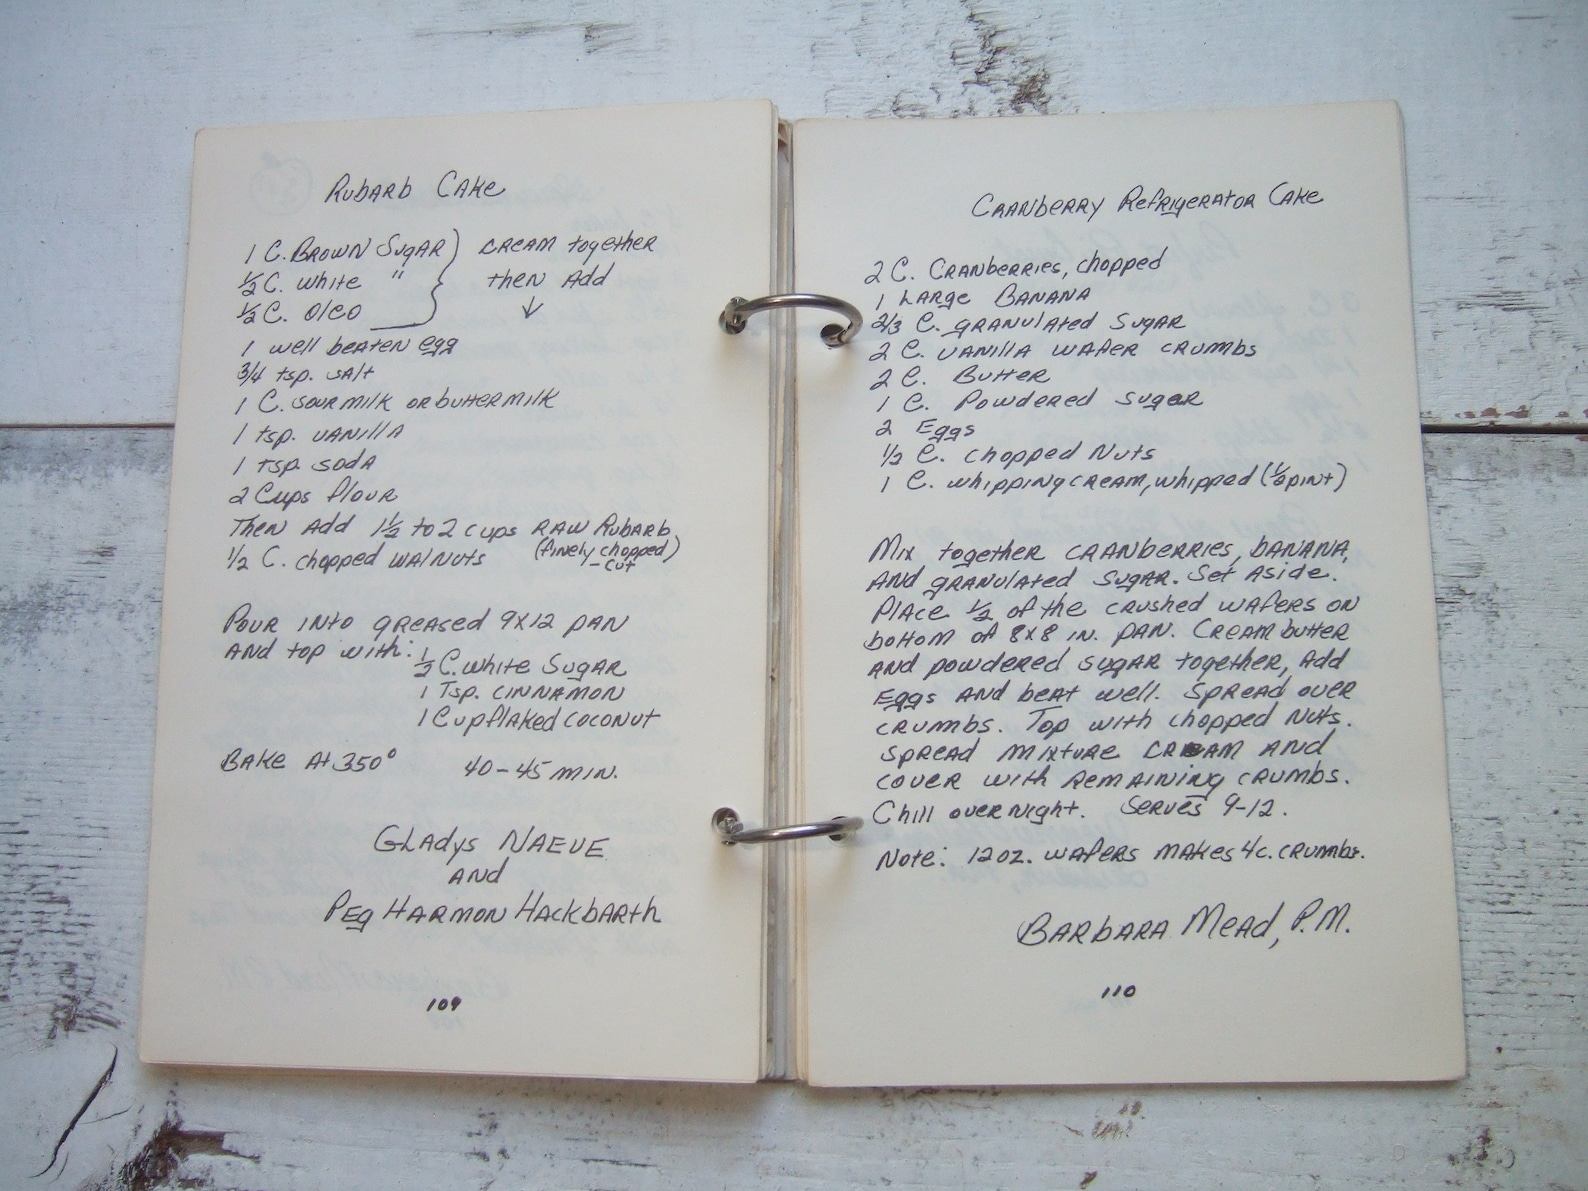 Rubarb Cake
1 C. Brown Sugar } cream together
1/2 C. white " then Add
1/2 C. Oleo ↓
1 well beaten egg
3/4 tsp. salt
1 C. sour milk or buttermilk
1 tsp. vanilla
1 tsp. soda
2 Cups flour
Then Add 1 1/2 to 2 cups raw Rubarb
1/2 C. chopped walnuts (finely chopped)
-cut
Pour into greased 9x12 pan
and top with:
1/2 C. white Sugar
1 Tsp. cinnamon
1 Cup flaked coconut
Bake At 350° 40-45 min.
Gladys Naeve
and
Peg Harmon Hackbarth
109
Cranberry Refrigerator Cake
2 C. Cranberries, chopped
1 Large Banana
2/3 C. granulated Sugar
2 C. vanilla wafer crumbs
2 C. Butter
1 C. Powdered sugar
2 Eggs
1/2 C. chopped Nuts
1 C. whipping cream, whipped (1/2 pint)
Mix together cranberries, banana,
and granulated sugar. Set Aside.
Place 1/2 of the crushed wafers on
bottom of 8x8 in. pan. Cream butter
and powdered sugar together, add
Eggs and beat well. Spread over
crumbs. Top with chopped nuts.
Spread mixture cream and
cover with remaining crumbs.
Chill overnight. Serves 9-12.
Note: 12 oz. wafers makes 4 c. crumbs.
Barbara Mead, P.M.
110